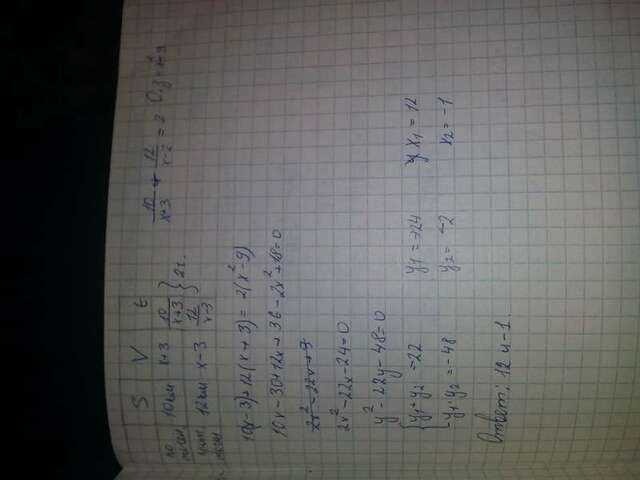 S V t
по течен. 10 км x+3 10/x+3 } 2ч.
прот. течен 12 км x-3 12/x-3
10/x+3 + 12/x-2 = 2
10(x-3)+12(x+3)=2(x²-9)
10x-30+12x+36-2x²+18=0
2x²-22x-24=0
y²-22y-48=0
{ y₁+y₂=22 y₁=24 x₁=12
y₁·y₂=-48 y₂=-2 x₂=-1
Ответ: 12 и -1.